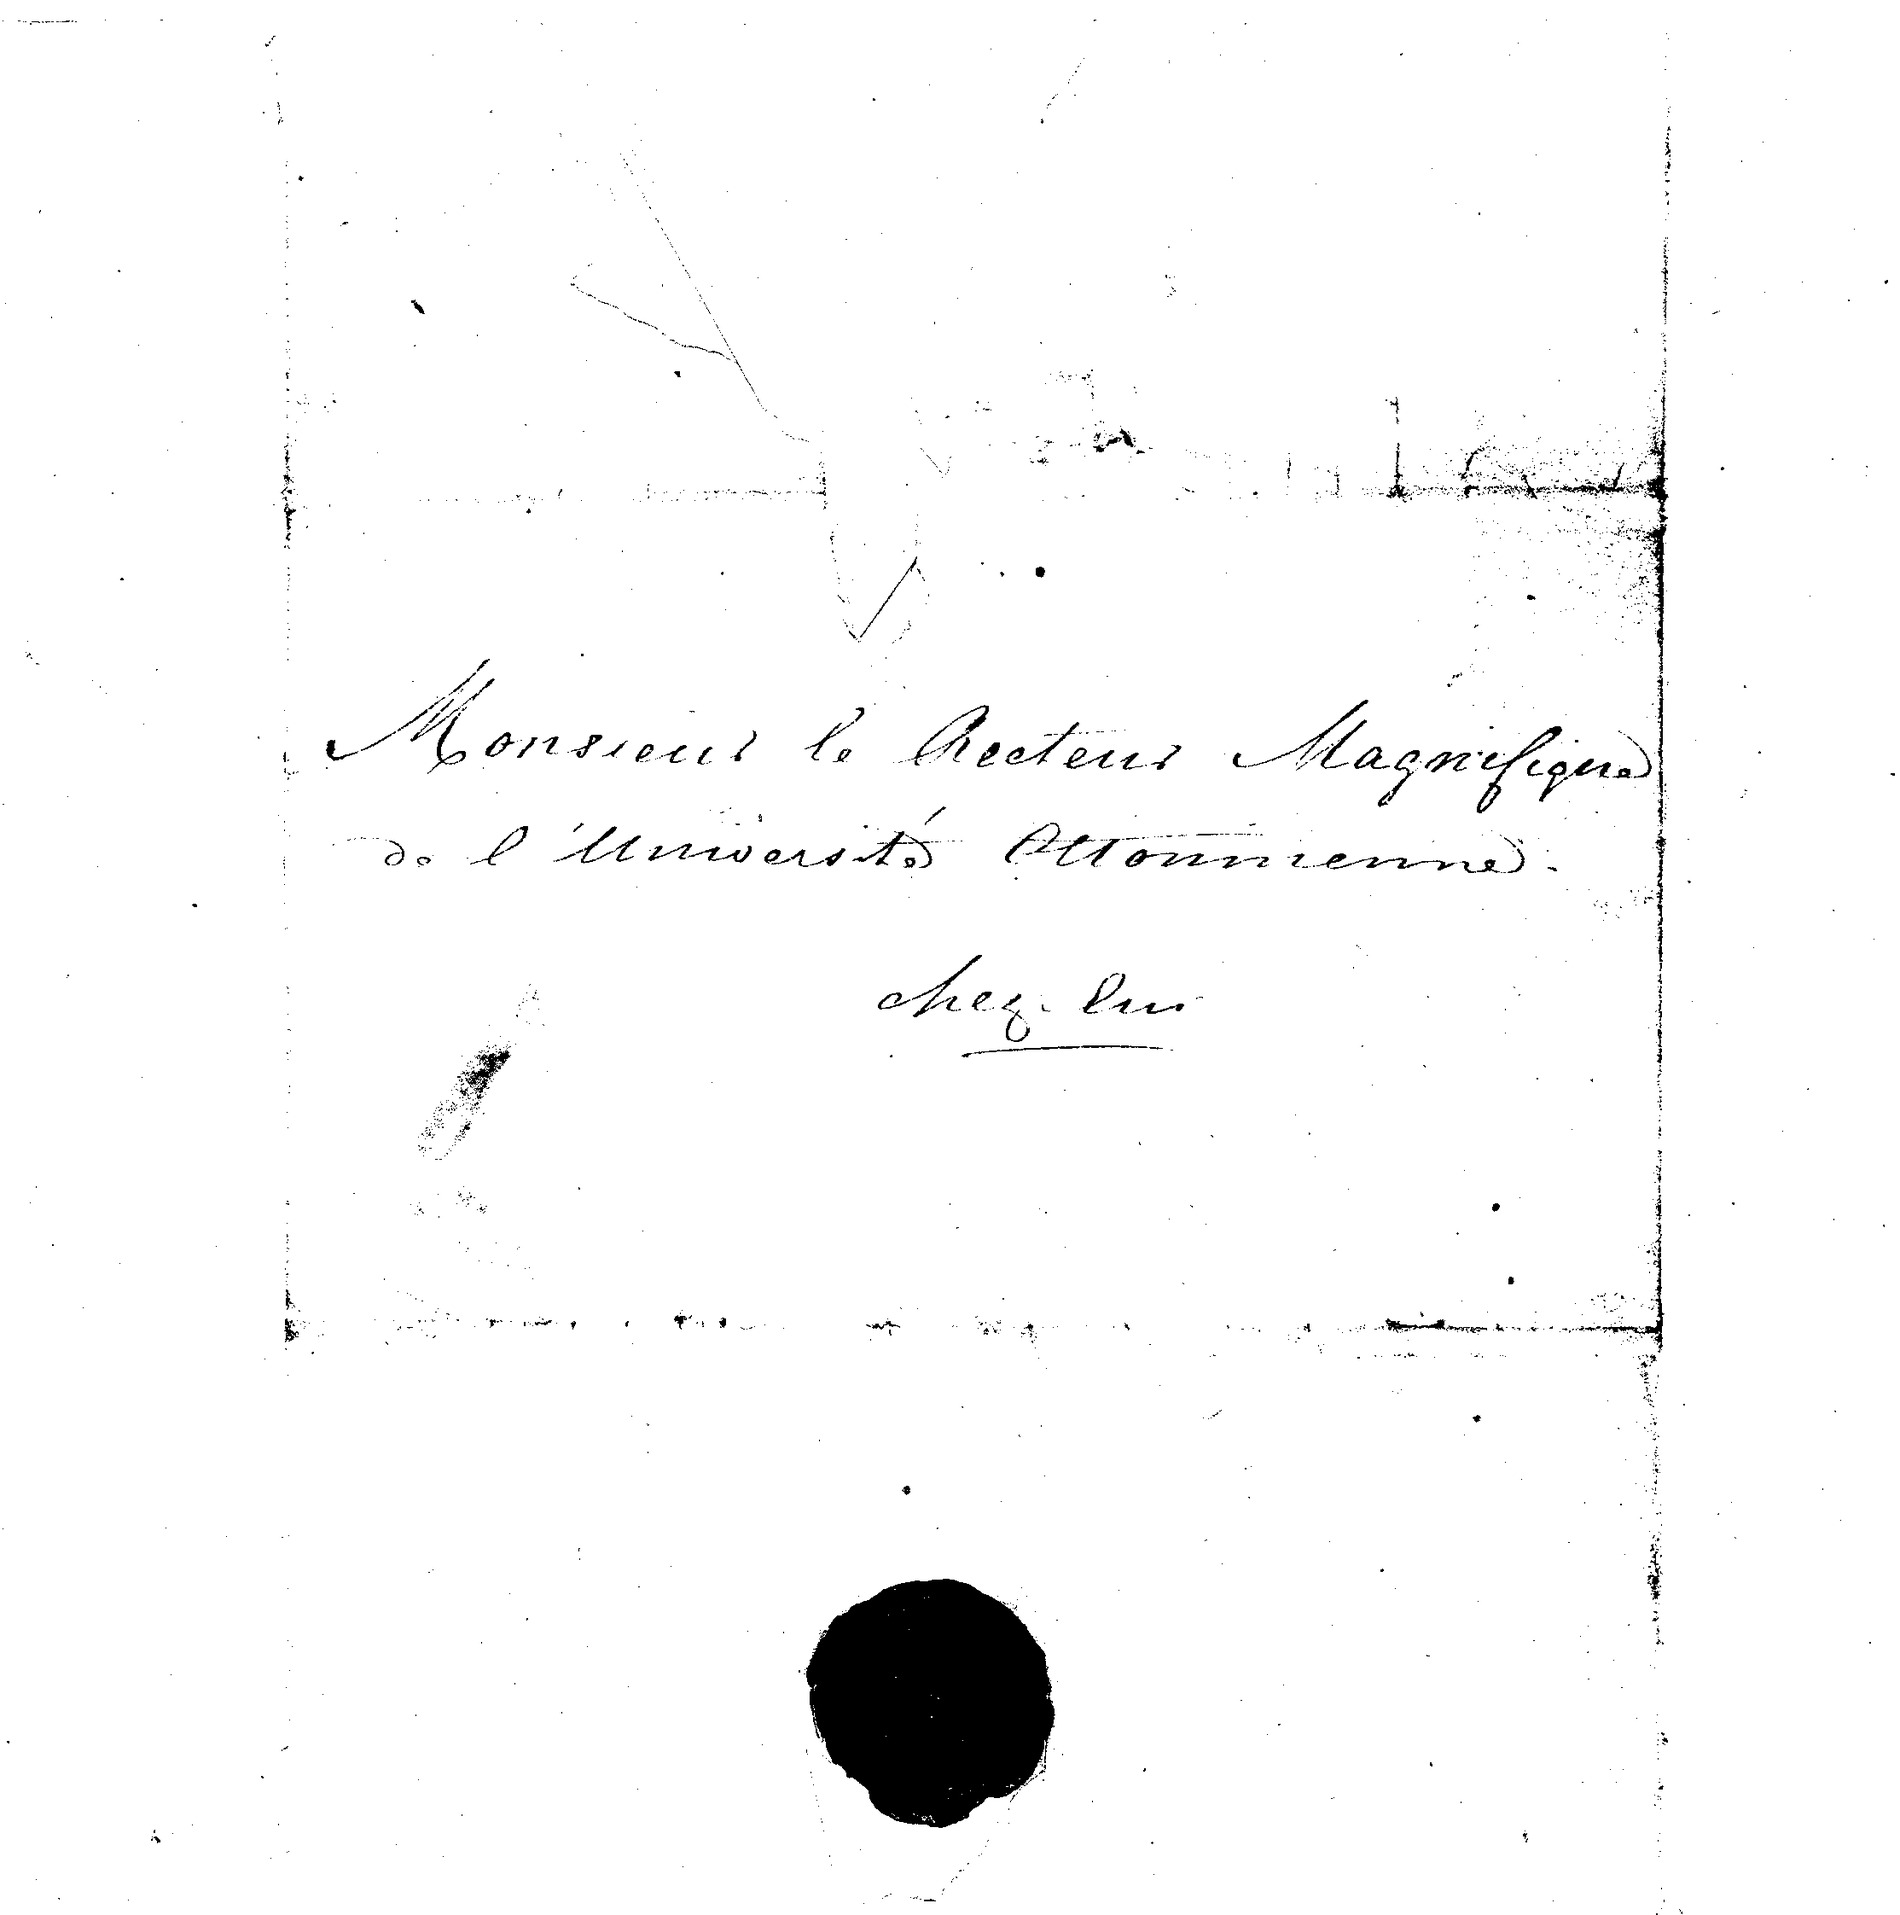 Monsieur le Recteur Magnifique
de l'Université Ottonienne.
chez-lui